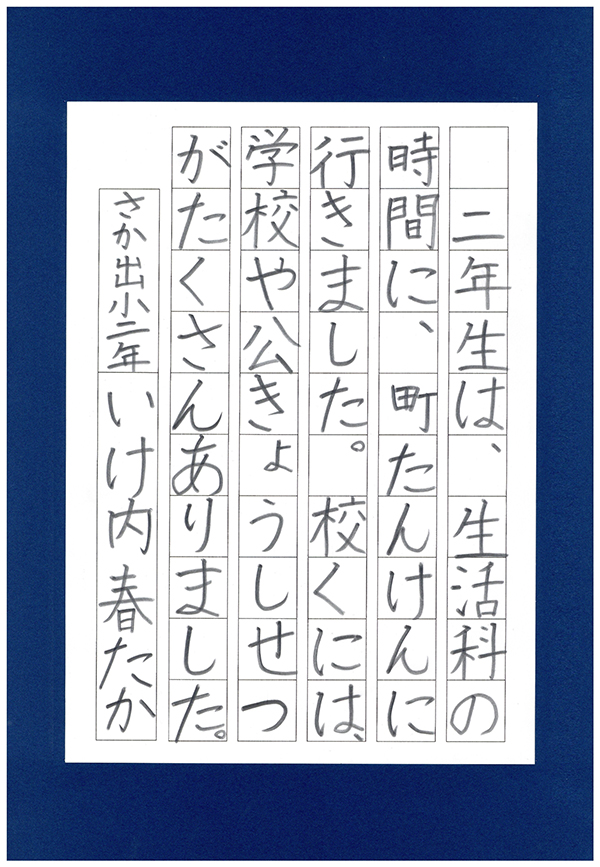 二年生は、生活科の
時間に、町たんけんに
行きました。校くには、
学校や公きょうしせつ
がたくさんありました。
さか出小二年 いけ内春たか